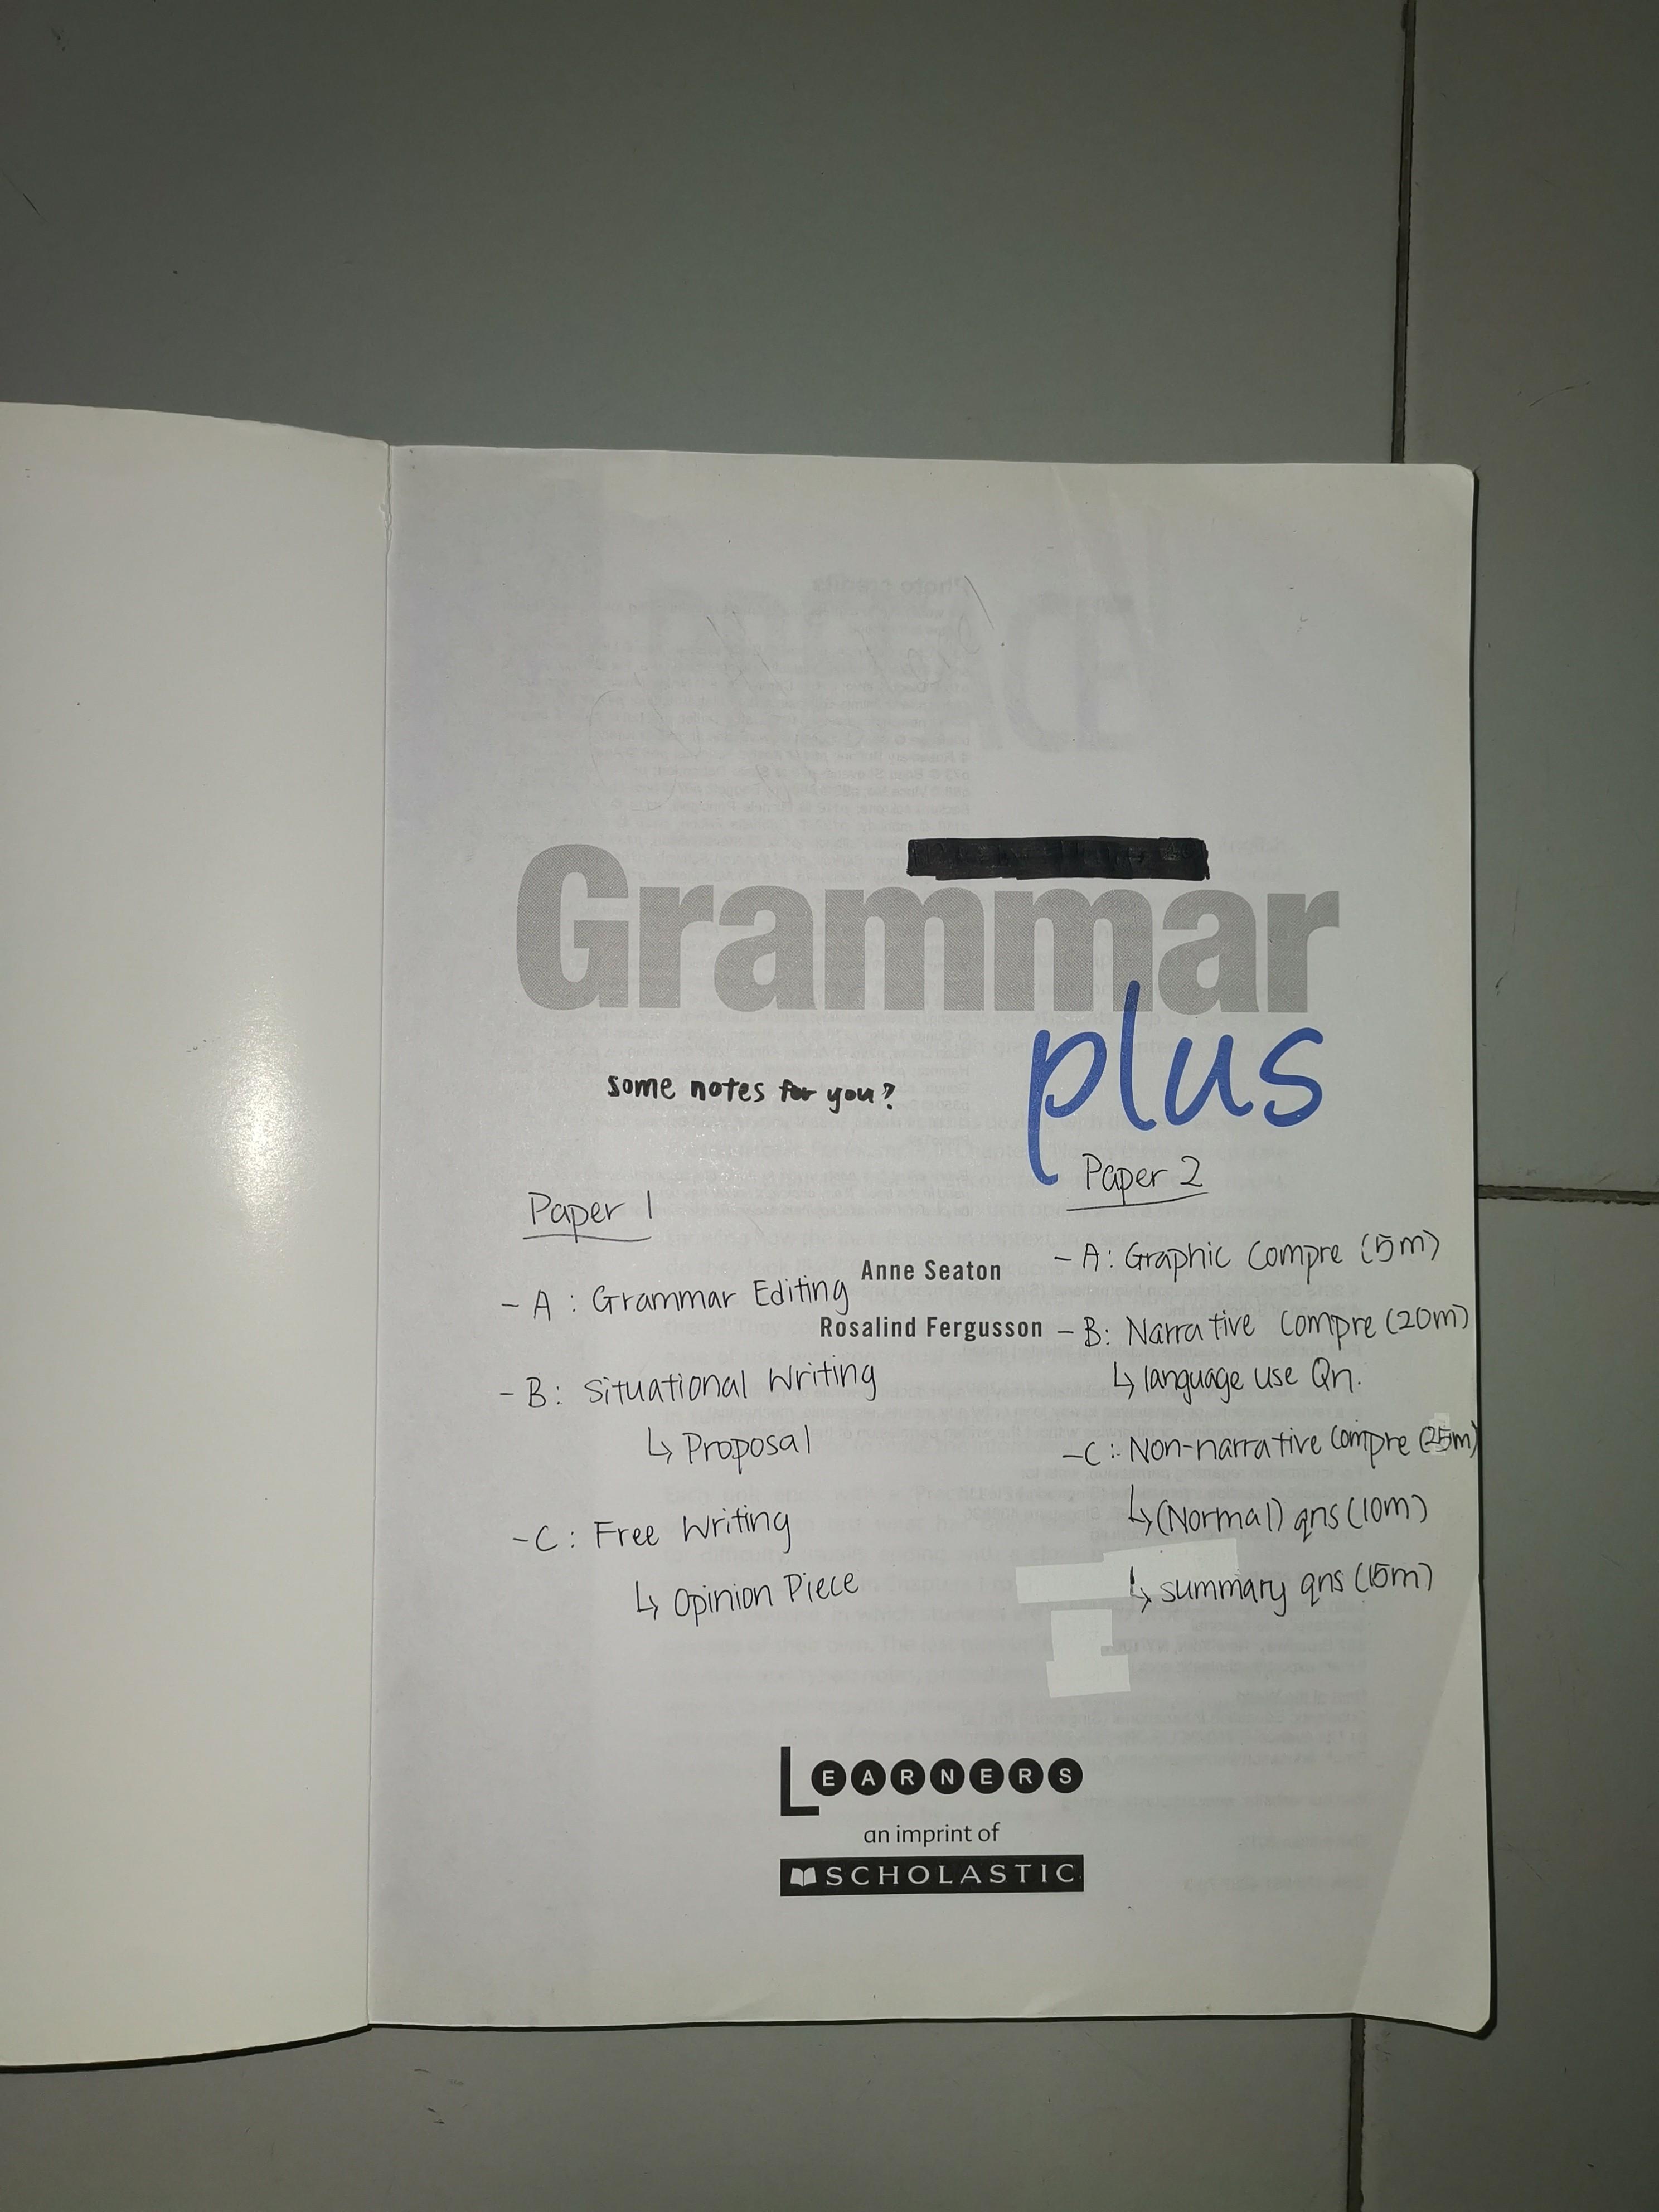 Grammar
plus
some notes for you?
Paper 1
- A : Grammar Editing
- B : Situational Writing
↳ Proposal
- C : Free Writing
↳ Opinion Piece
Anne Seaton
Rosalind Fergusson
Paper 2
- A : Graphic Compre (5m)
- B : Narrative Compre (20m)
↳ language use Qn.
- C : Non-narrative Compre (25m)
↳ (Normal) qns (10m)
↳ summary qns (15m)
LEARNERS
an imprint of
SCHOLASTIC